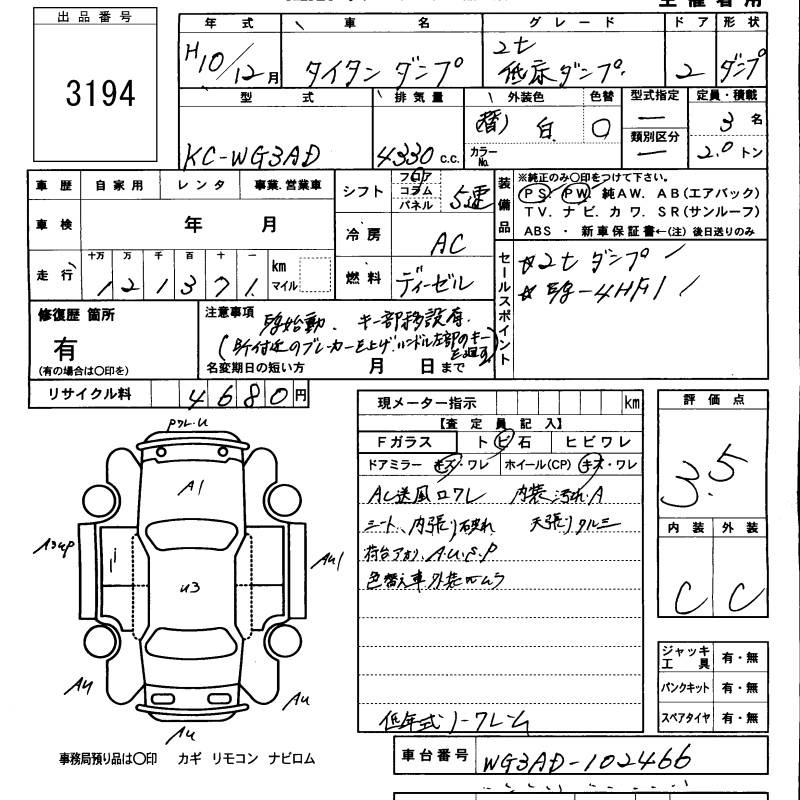 出品番号
3194
年式 車名 グレード ドア 形状
H10/12月 タイタン ダンプ 2t 低床ダンプ. 2 ダンプ
型式 排気量 外装色 色替 型式指定 定員・積載
KC-WG3AD 4330c.c. 替) 白 カラーNo. ○ ー 類別区分 ー 3名 2.0トン
車歴 自家用 レンタ 事業.営業車
車検 年 月
走行 十万 万 千 百 十 一 km マイル
121371
シフト フロア コラム パネル 5速
冷房 AC
燃料 ディーゼル
装備品
※純正のみ〇印をつけて下さい。
PS. PW. 純AW. AB(エアバック)
TV. ナビ. カワ. SR(サンルーフ)
ABS ・ 新車保証書←(注) 後日送りのみ
セールスポイント
☆2t ダンプ
修復歴 箇所
有
(有の場合は〇印を)
注意事項
キー部移設有.
名変期日の短い方 月 日まで
リサイクル料 4680円
現メーター指示 km
【査定員記入】
Fガラス トビ石 ヒビワレ
ドアミラー キズ・ワレ ホイール(CP) キズ・ワレ
AC送風口ワレ 内装汚れA
シート、内張り破れ 天張りタルミ
荷台アオリ、A.U.S.P
色替え車 外装ムラ
低年式ノークレーム
評価点
3.5
内装 外装
C C
ジャッキ工具 有・無
パンクキット 有・無
スペアタイヤ 有・無
A1
U3
AU1
AU
AU
AU
事務局預り品は〇印 カギ リモコン ナビロム
車台番号 WG3AD-102466